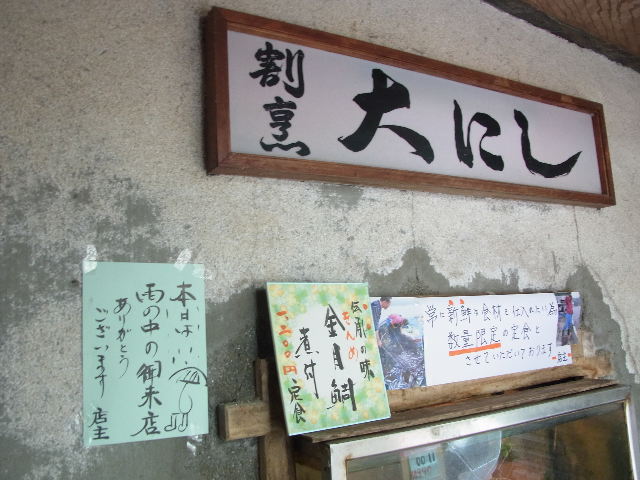 割烹
大にし
本日は
雨の中の御来店
ありがとう
ございます
店主
伝承の味
金目鯛
煮付
定食
常に新鮮な食材を仕入れたい為
数量限定の定食と
させていただいております
店主
0011